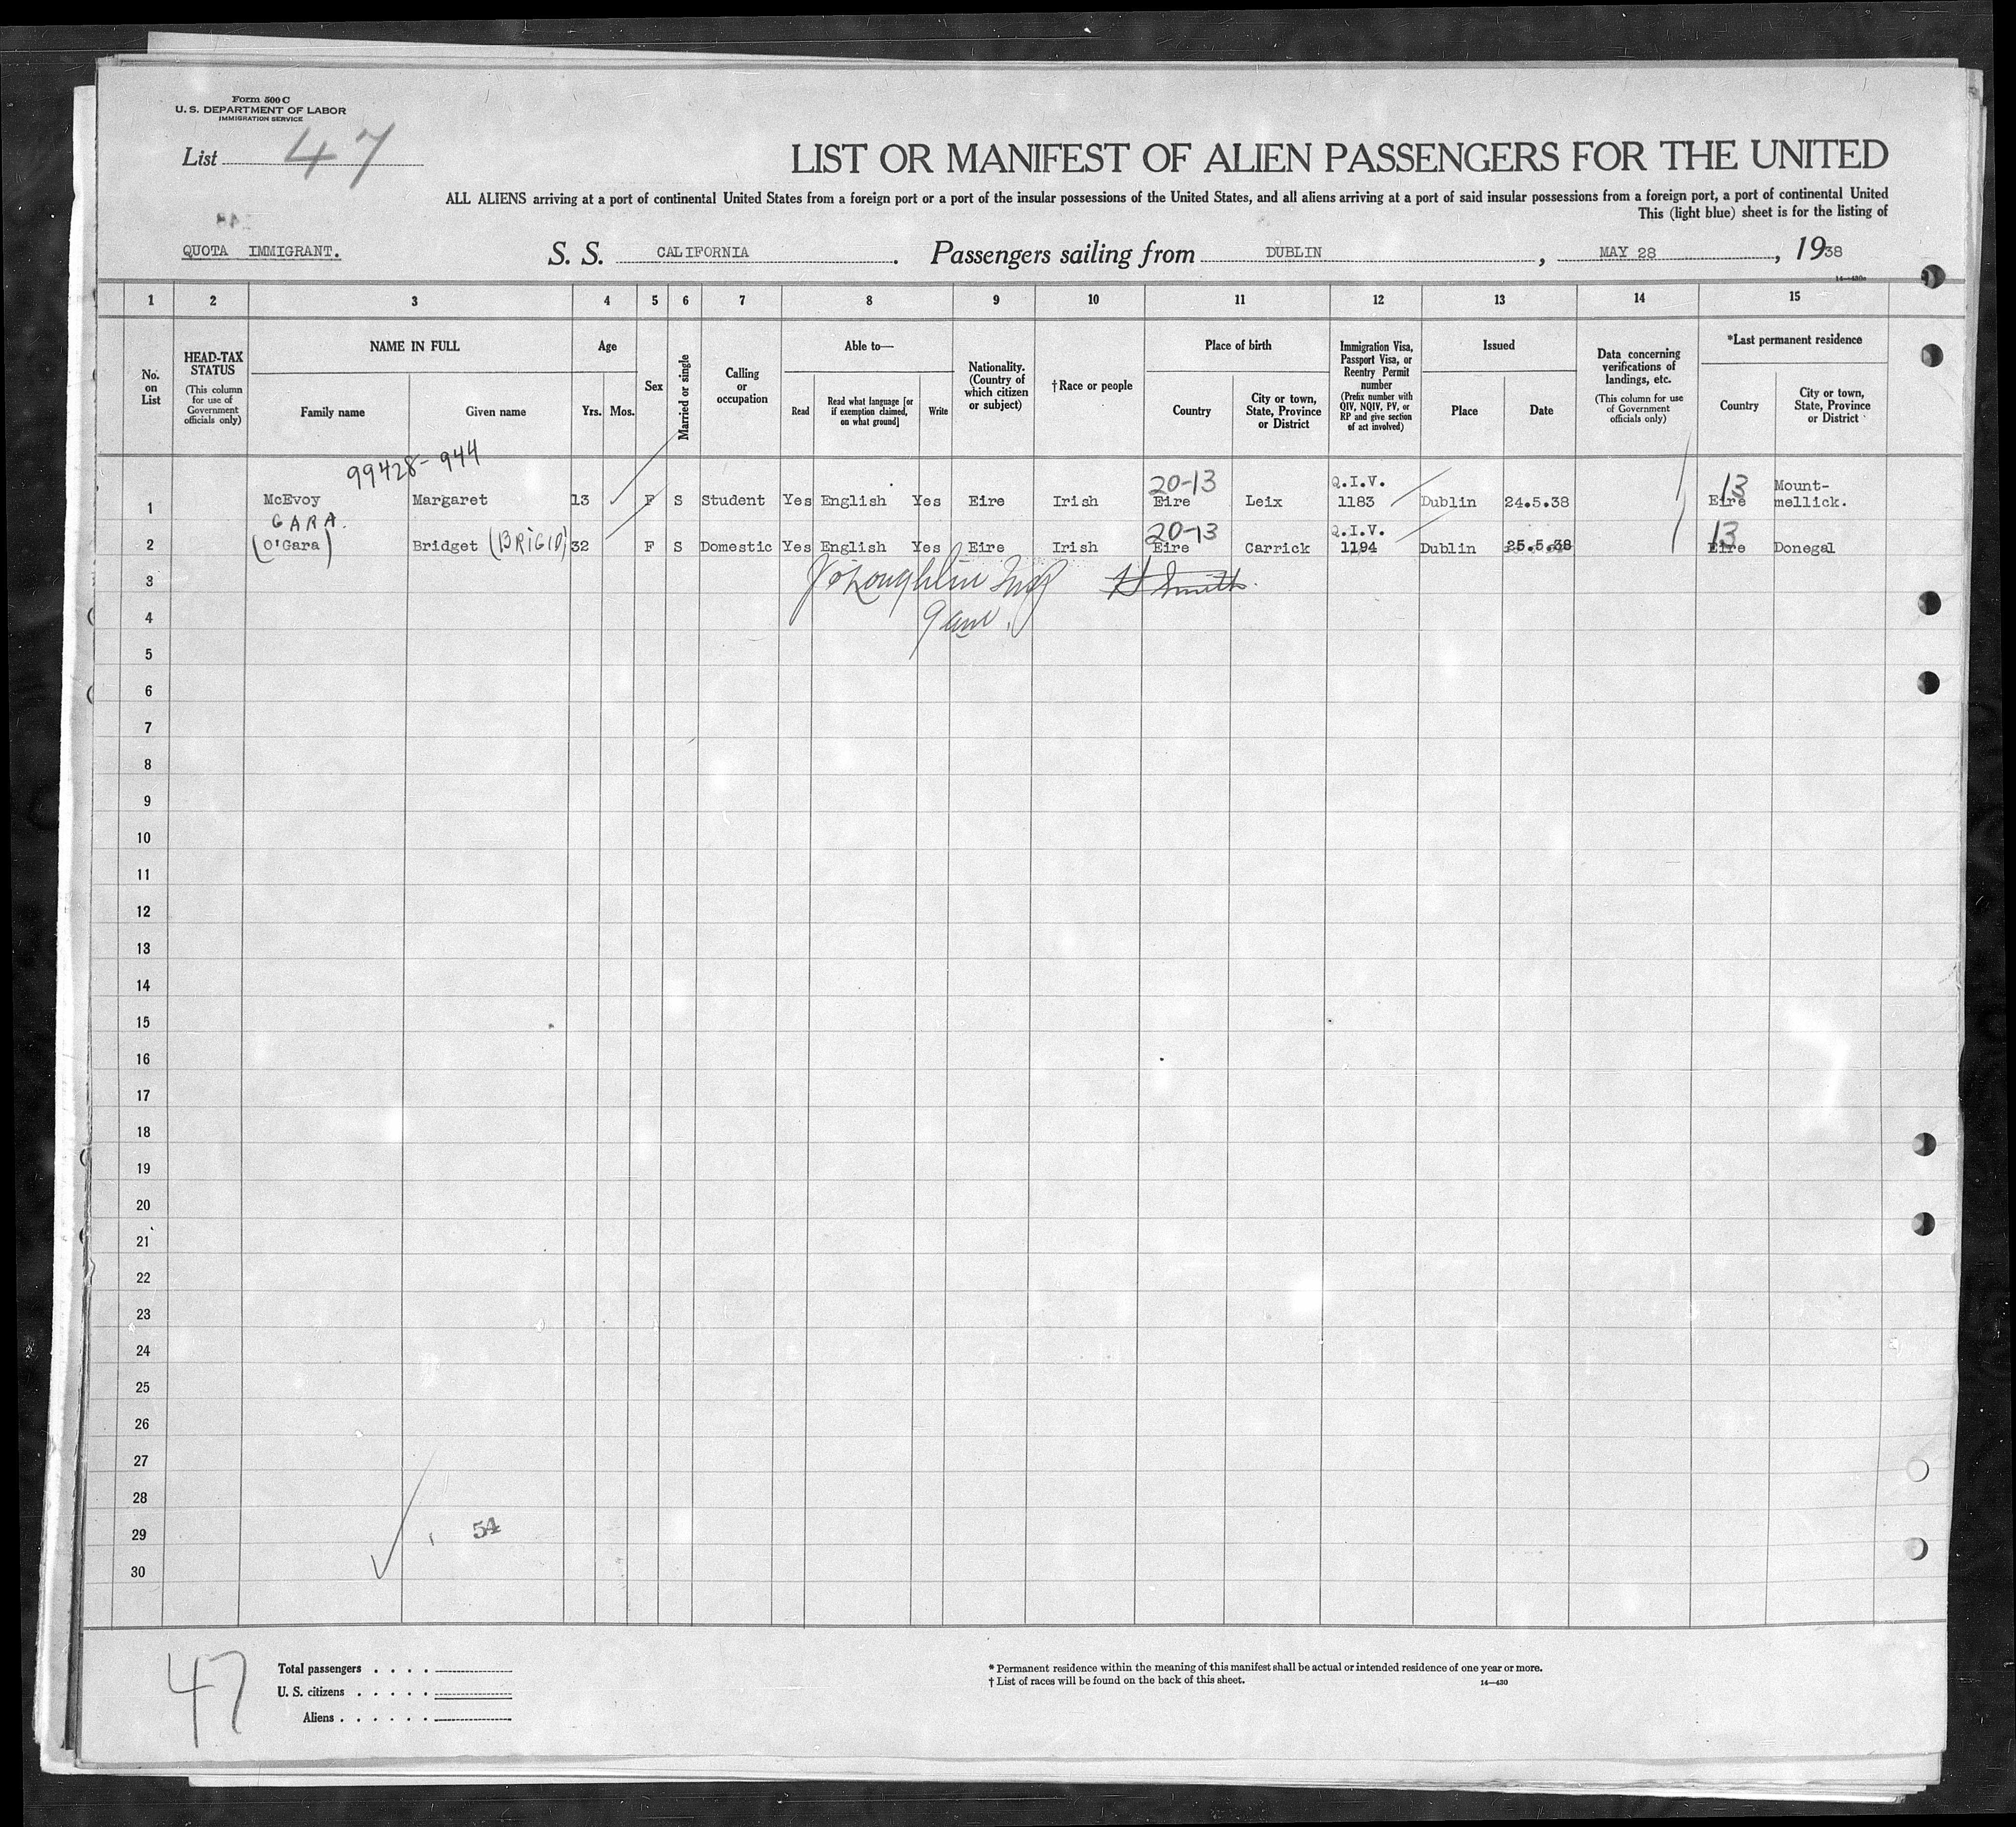 Form 500 C
U. S. DEPARTMENT OF LABOR
IMMIGRATION SERVICE
List 47
LIST OR MANIFEST OF ALIEN PASSENGERS FOR THE UNITED
ALL ALIENS arriving at a port of continental United States from a foreign port or a port of the insular possessions of the United States, and all aliens arriving at a port of said insular possessions from a foreign port, a port of continental United
This (light blue) sheet is for the listing of
QUOTA IMMIGRANT. S. S. CALIFORNIA. Passengers sailing from DUBLIN, MAY 28, 1938
14—430a
1 2 3 4 5 6 7 8 9 10 11 12 13 14 15
No. on List
HEAD-TAX STATUS (This column for use of Government officials only)
NAME IN FULL
Family name Given name
Age
Yrs. Mos.
Sex
Married or single
Calling or occupation
Able to—
Read Read what language [or if exemption claimed, on what ground] Write
Nationality. (Country of which citizen or subject)
†Race or people
Place of birth
Country City or town, State, Province or District
Immigration Visa, Passport Visa, or Reentry Permit number (Prefix number with QIV, NQIV, PV, or RP and give section of act involved)
Issued
Place Date
Data concerning verifications of landings, etc. (This column for use of Government officials only)
*Last permanent residence
Country City or town, State, Province or District
99428-944
20-13 Q.I.V. 13 Mount-
1 McEvoy Margaret 13 F S Student Yes English Yes Eire Irish Eire Leix 1183 Dublin 24.5.38 Eire mellick.
GARA. 20-13 Q.I.V. 13
2 (O'Gara) Bridget (BRIGID) 32 F S Domestic Yes English Yes Eire Irish Eire Carrick 1194 Dublin 25.5.38 Eire Donegal
3 J O'Loughlin Insp H Smith.
4
5
6
7
8
9
10
11
12
13
14
15
16
17
18
19
20
21
22
23
24
25
26
27
28
29 54
30
47
Total passengers . . . .
U. S. citizens . . . . .
Aliens . . . . . .
* Permanent residence within the meaning of this manifest shall be actual or intended residence of one year or more.
† List of races will be found on the back of this sheet.
14—430